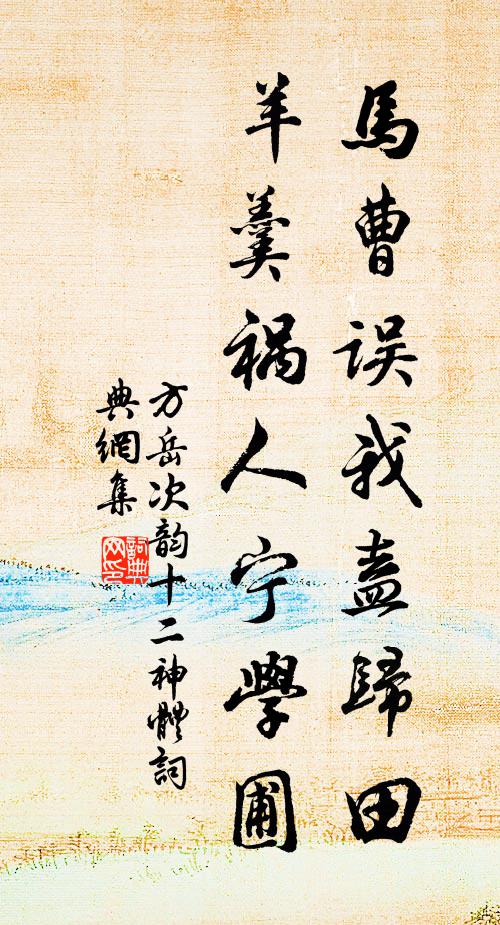 馬曹误我盍歸田
羊羹祸人宁學圃
方岳次韵十二神體詞
典網集
詞典
网印